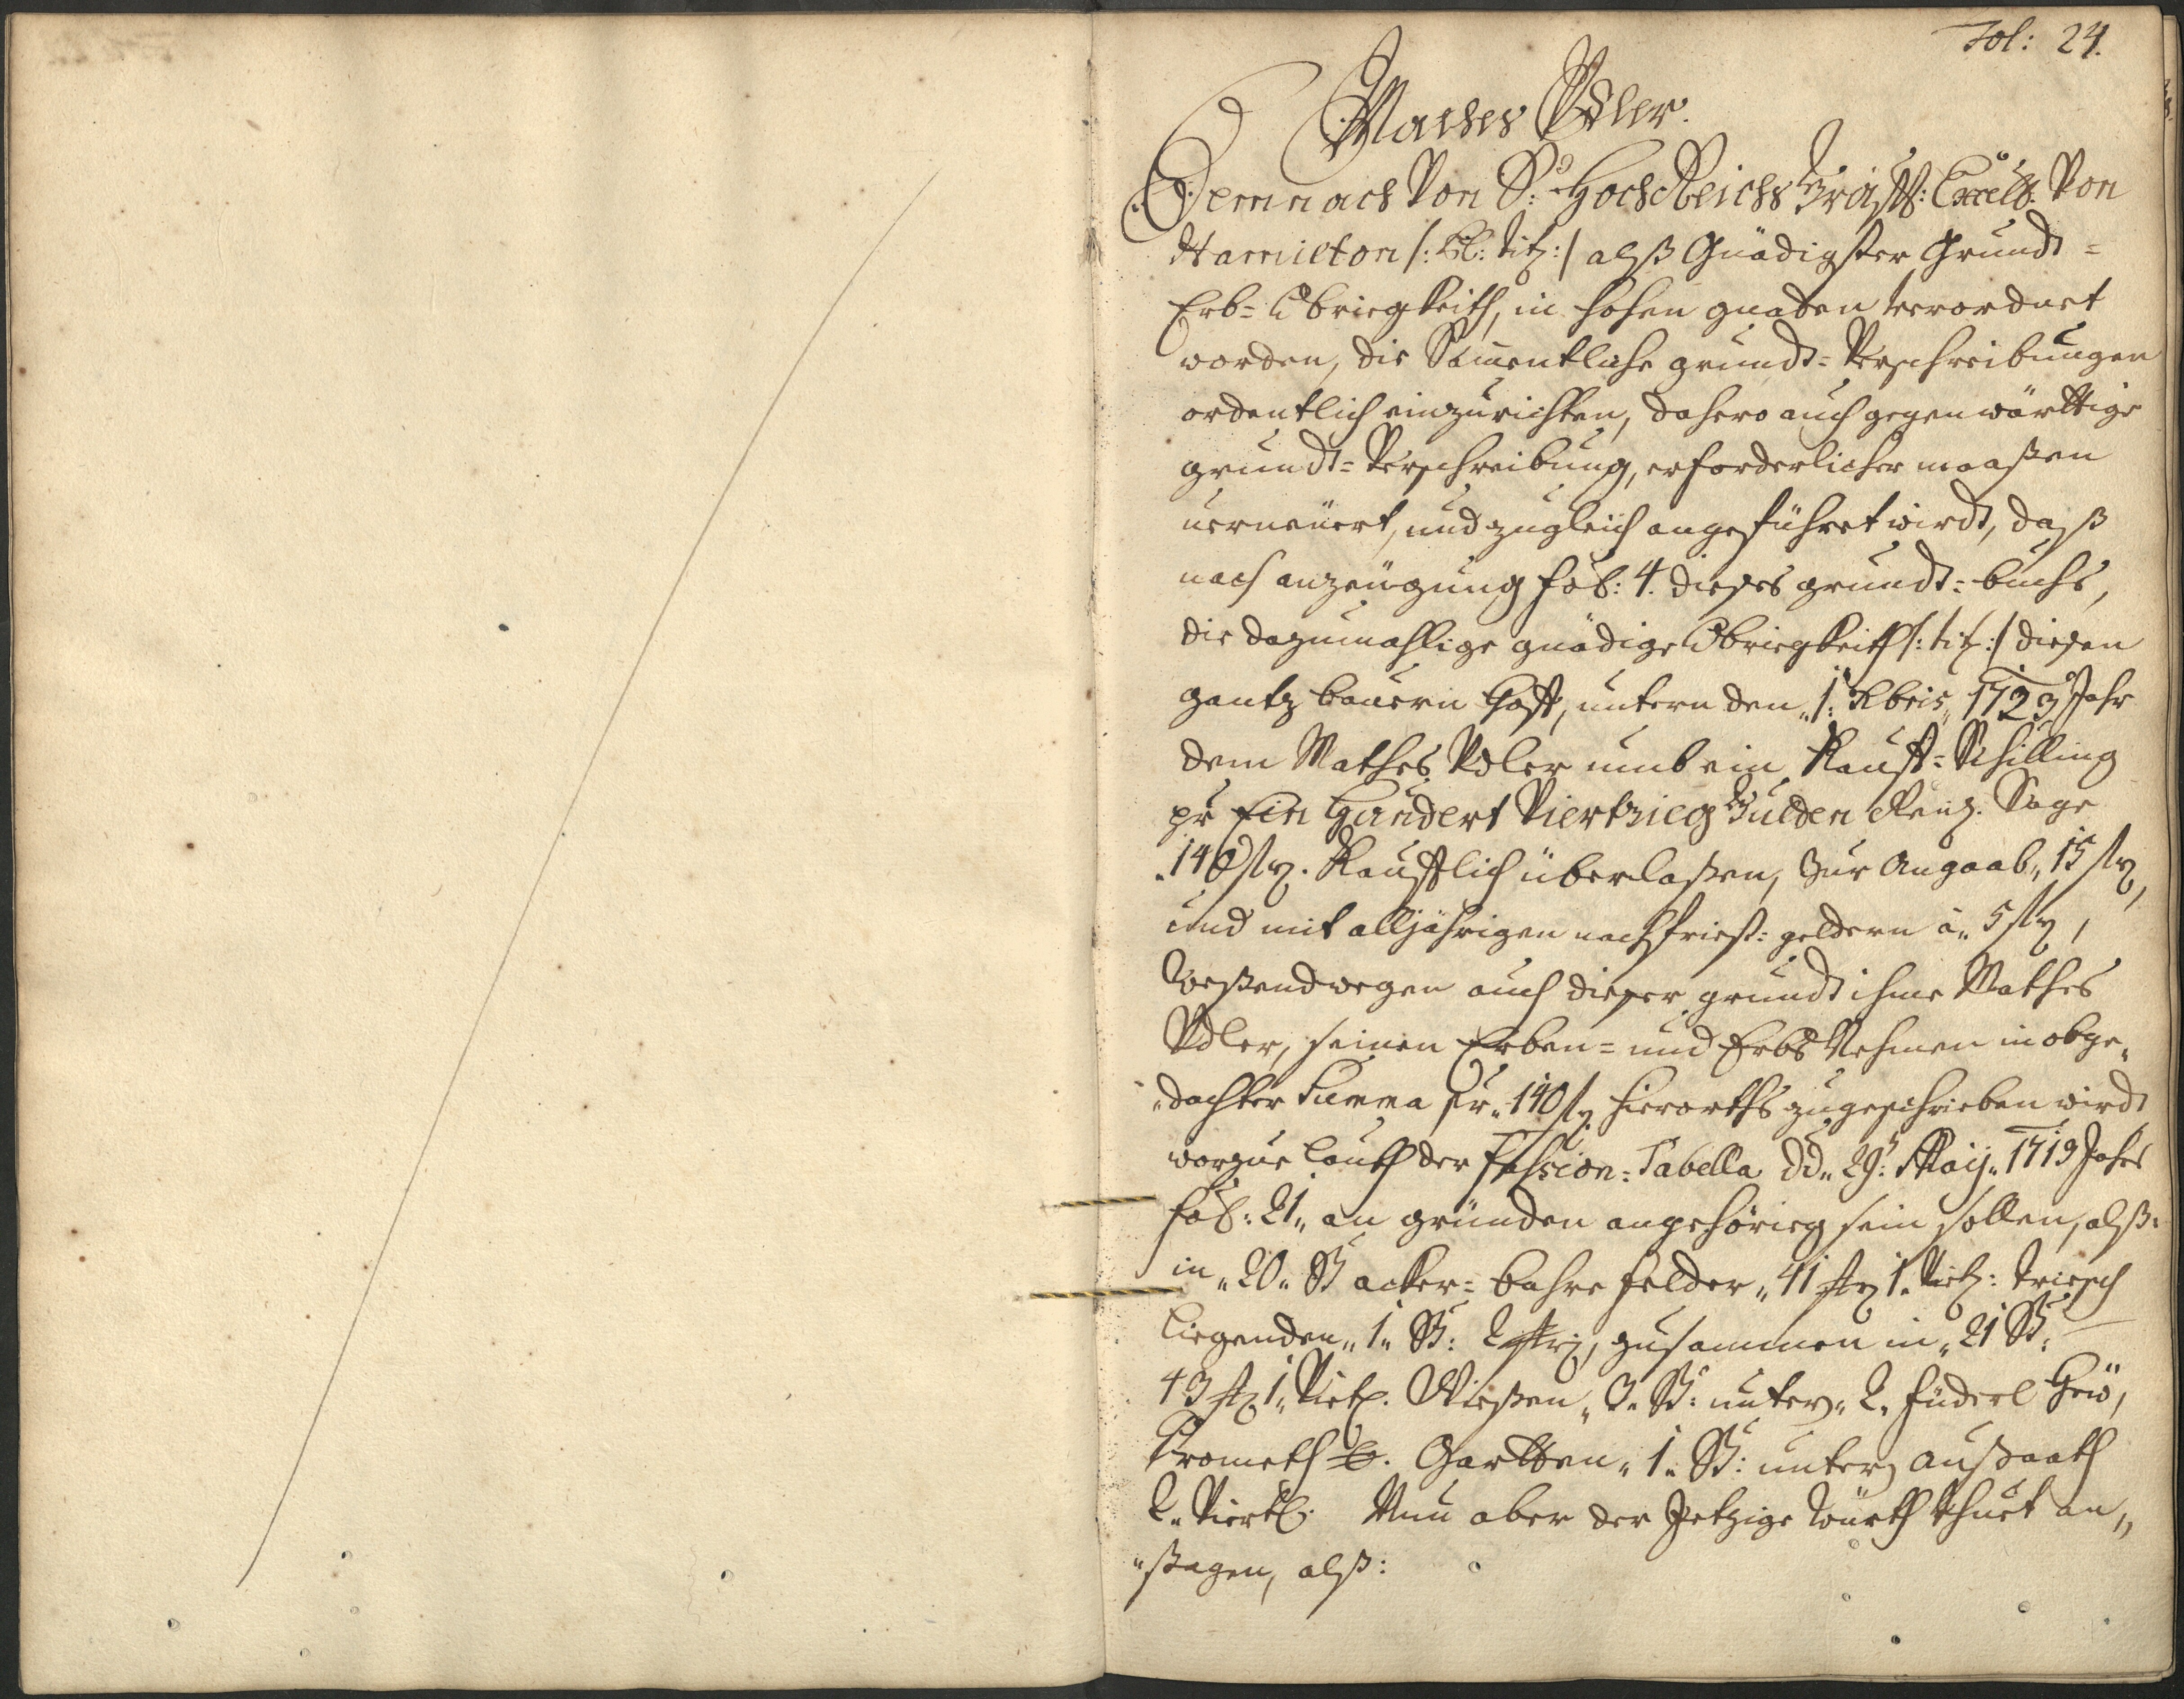 Fol: 24.
Mathes Adler.
Demnach Von S: HochReichsGräffl: Excell: Von
Hamilton /: pl: tit: / alß Gnädigster Grundt=
Erb= Obriegkeith, in hohen gnaden verordnet
worden, die Samentliche grundt= Verschreibungen
ordentlich einzurichten, dahero auch gegenwärttige
grundt= Verschreibung, erforderlicher maaßen
verneüert, und zugleich angeführet wirdt, daß
nach anzeügung fol: 4. dießes grundt= buchs,
die dazumahlige gnädige Obriegkeith /: tit: / dießen
gantz bauern Hoff, untern den 1: Xbris 1723 Jahr
dem Mathes Adler umb ein Kauff= Schilling
pr Ein Hundert Viertzieg Gulden Reinl. Sage
140 fl. Kaufflich überlaßen, Zur Angaab 15 fl,
und mit alljährigen nachfriest= geldern à 5 fl,
Weßendwegen auch dießer grundt ihme Mathes
Adler, seinen Erben= und Erbs Nehmen in obge„
„dachter Summa pr 140 fl hierorths zugeschrieben wirdt
worzue lauth der Fassion= Tabella dd 29: Maij 1719 Jahrs
fol: 21 an gründen angehörieg sein sollen, alß:
in 20 St acker= bahre felder 41 str 1 Viertl: Triesch
liegenden 1 St: 2 str, zusammen in 21 St:
43 str 1 Viertl. Wießen 3 St: unter 2 füderl Heü,
Grometh . Gartten 1 St: unter außaath
2 Viertl. Nun aber der Jetzige Würth thuet an„
„ßagen, alß: